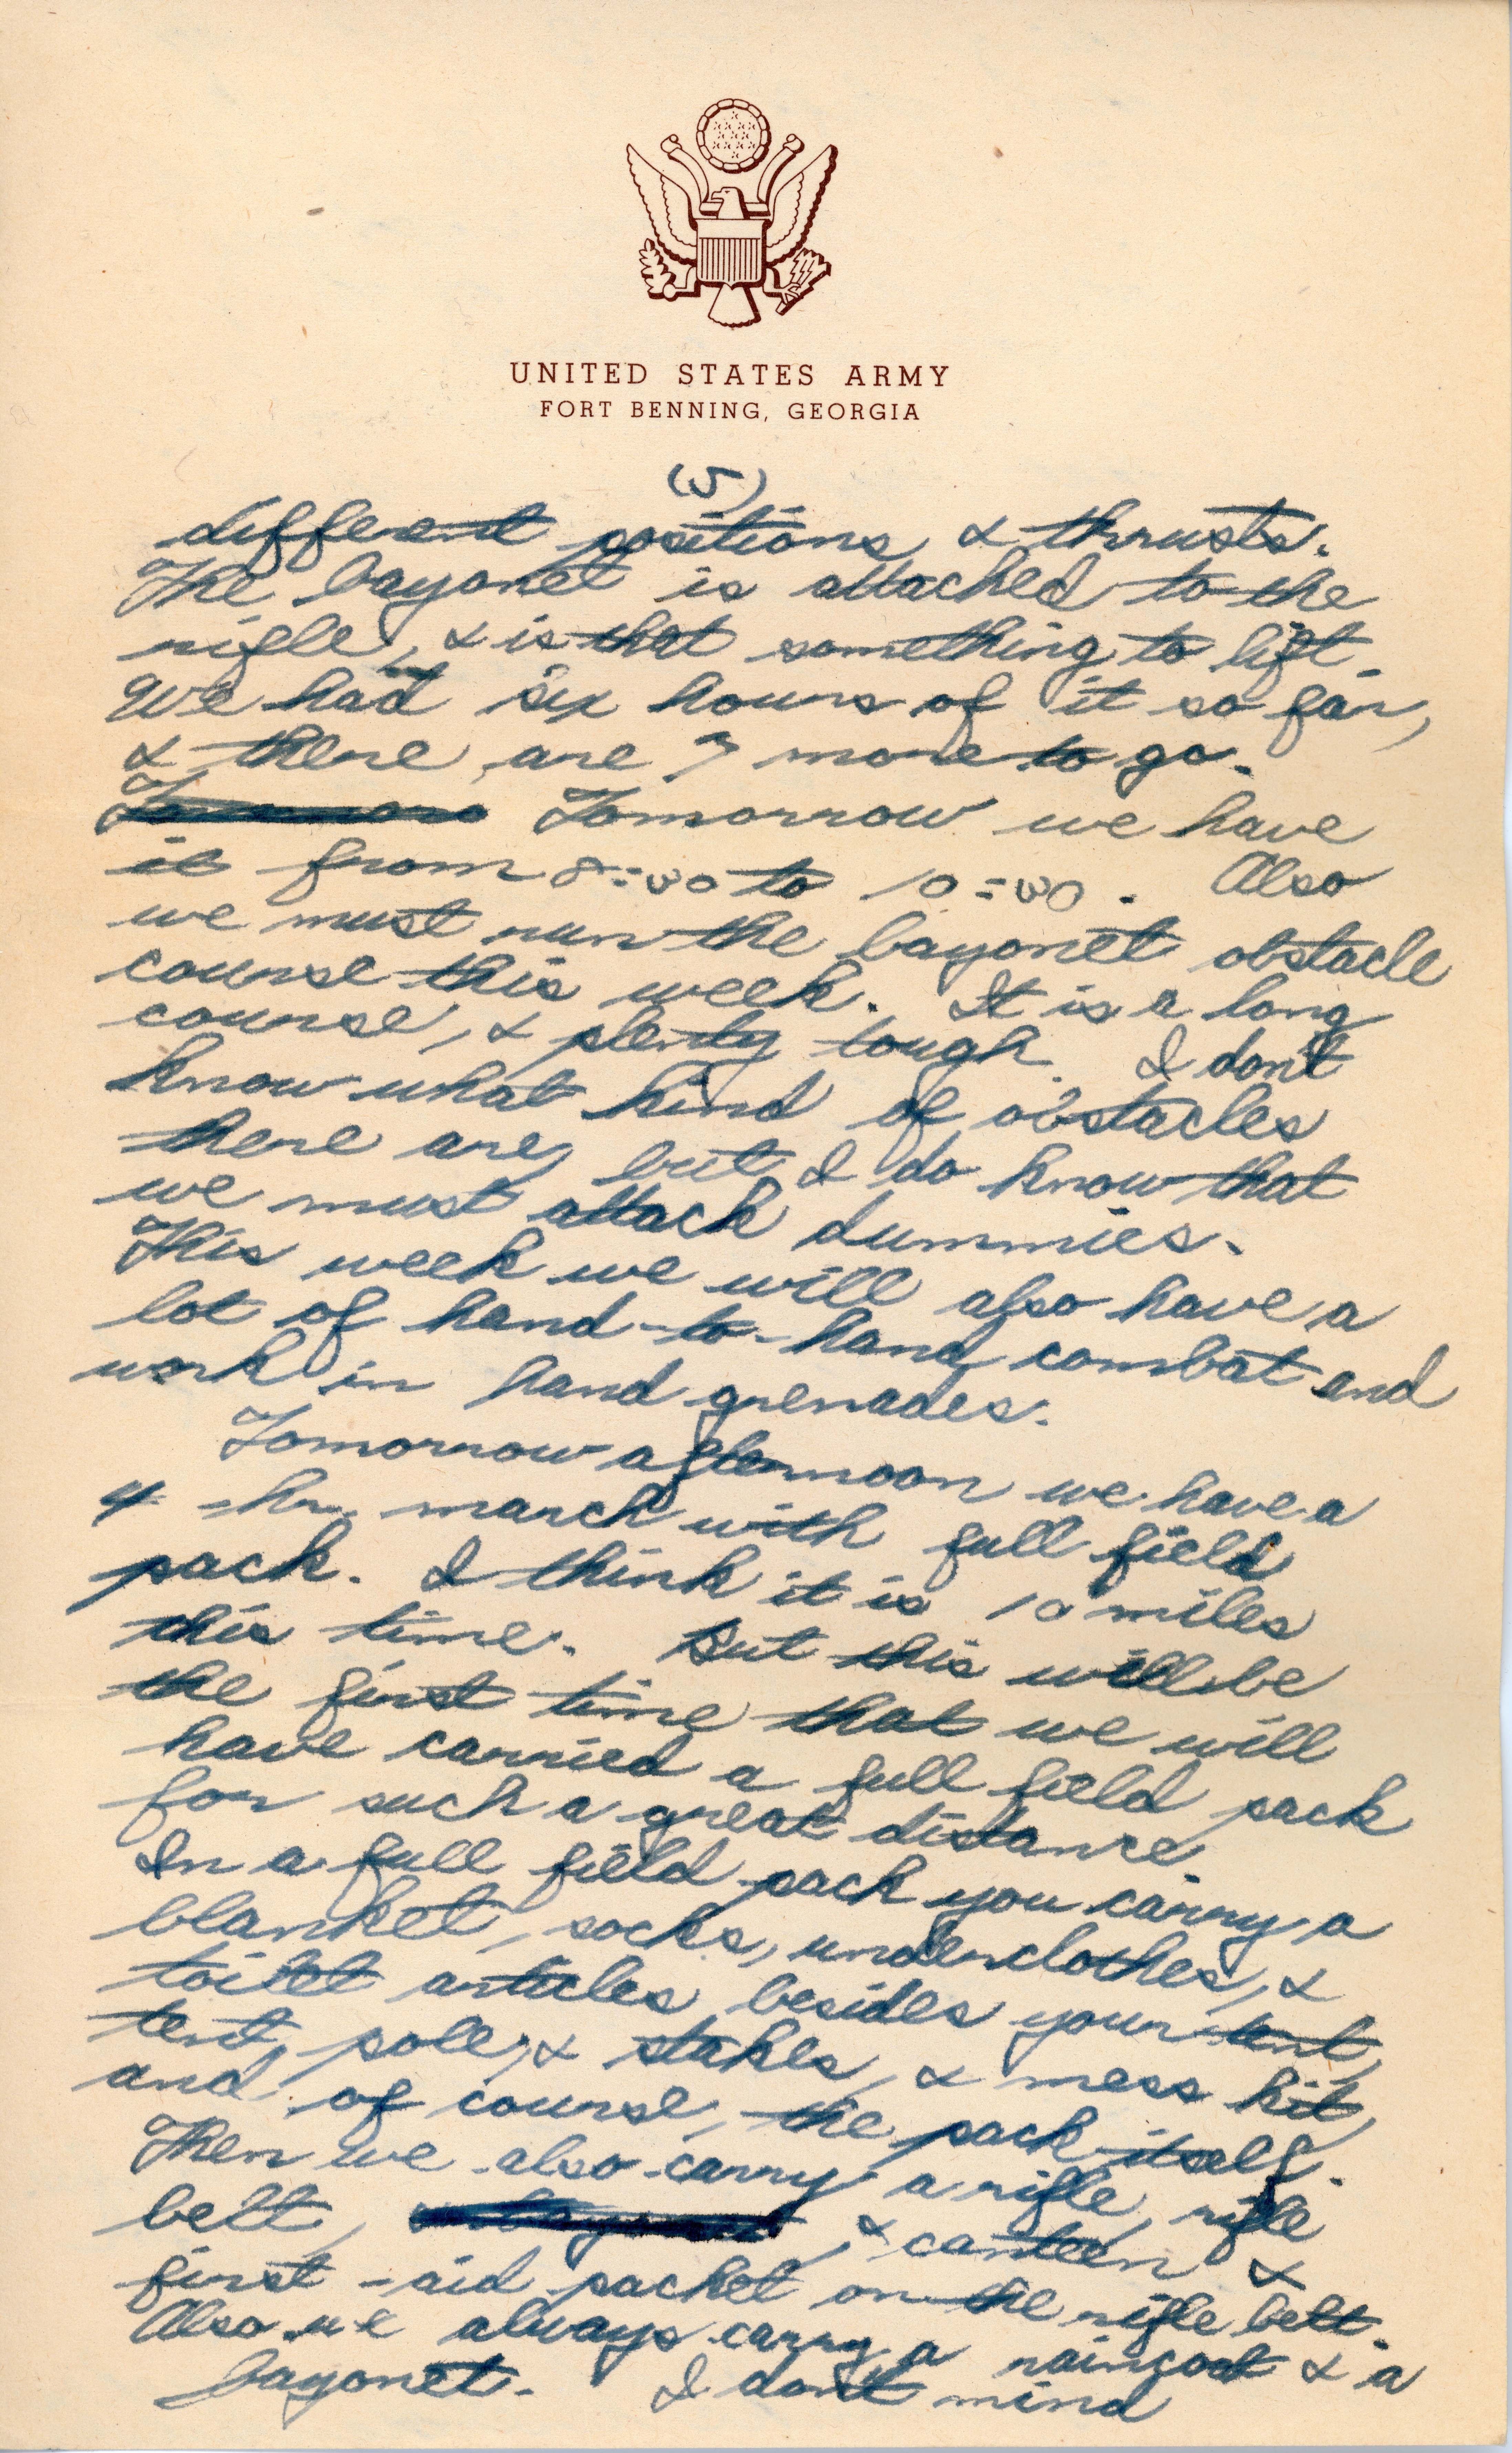 UNITED STATES ARMY
FORT BENNING, GEORGIA
(5)
different positions & thrusts.
The bayonet is attached to the
rifle, & is that something to lift.
We had six hours of it so far,
& there are 7 more to go.
Tomorrow we have
it from 8:30 to 10:30. Also
we must run the bayonet obstacle
course this week. It is a long
course, & plenty tough. I don't
know what kind of obstacles
there are, but I do know that
we must attack dummies.
This week we will also have a
lot of hand-to-hand combat and
work in hand grenades.
Tomorrow afternoon we have a
4-hr. march with full field
pack. I think it is 10 miles
this time. But this will be
the first time that we will
have carried a full field pack
for such a great distance.
In a full field pack you carry a
blanket, socks, underclothes, &
toilet articles besides your tent,
tent pole, & stakes, & mess kit,
and of course, the pack itself.
Then we also carry a rifle, rifle
belt, & canteen &
first-aid packet on the rifle belt.
Also we always carry a raincoat & a
bayonet. I don't mind